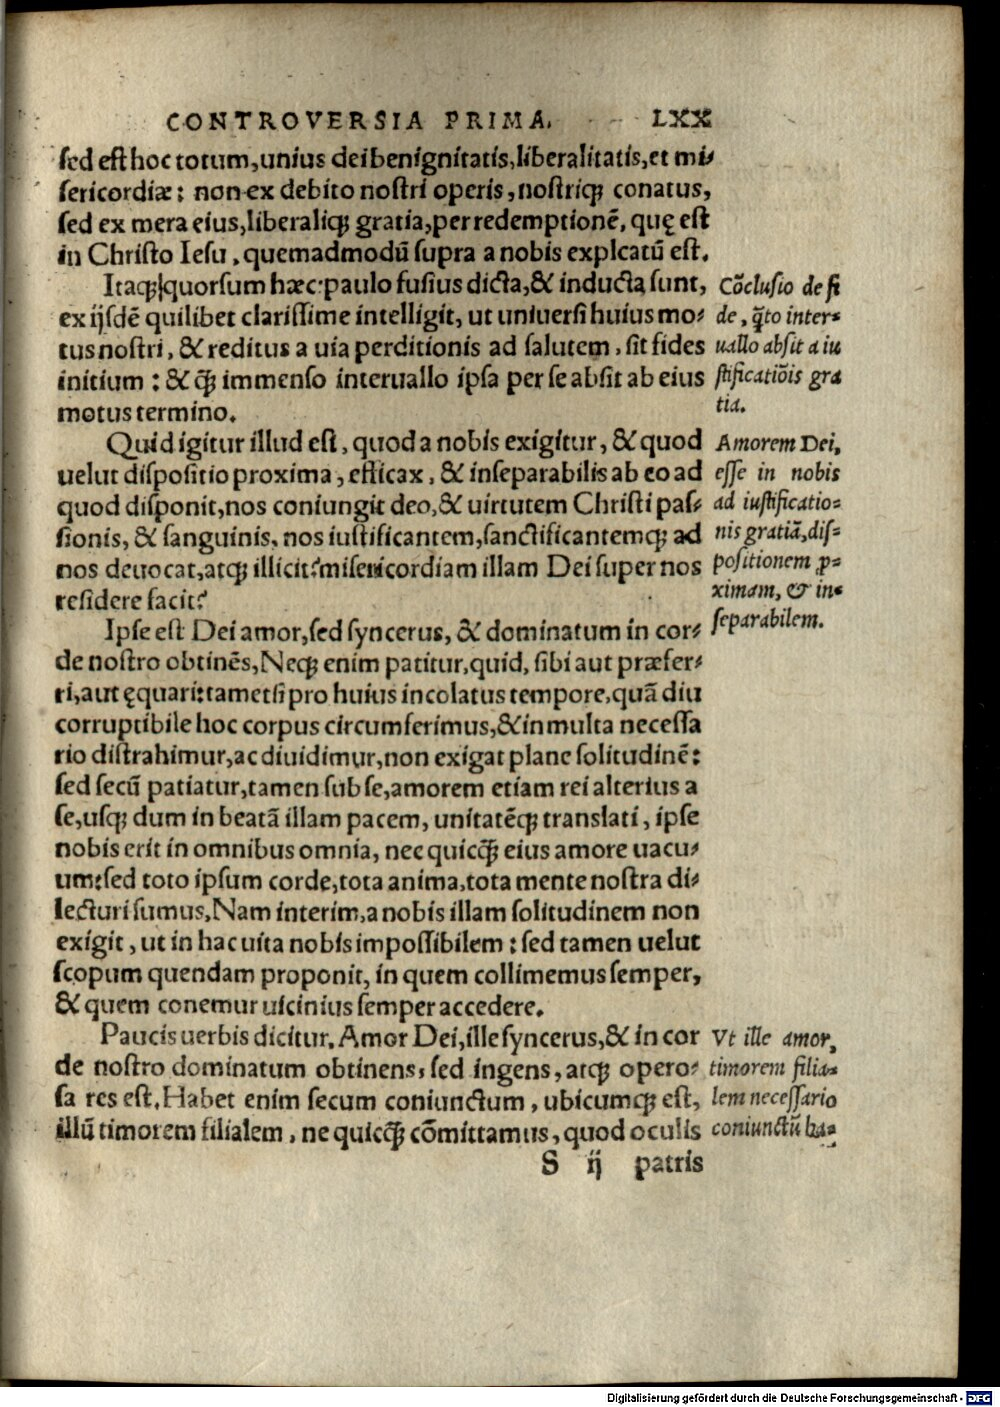 CONTROVERSIA PRIMA. LXX
sed est hoc totum, unius dei benignitatis, liberalitatis, et mi-
sericordiæ: non ex debito nostri operis, nostriq́; conatus,
sed ex mera eius, liberaliq́; gratia, per redemptionē, quę est
in Christo Iesu, quemadmodū supra a nobis explcatū est.
Itaq́; quorsum hæc paulo fusius dicta, & inducta sunt,
ex ijsdē quilibet clarissime intelligit, ut uniuersi huius mo-
tus nostri, & reditus a uia perditionis ad salutem, sit fides
initium: & q̄ȝ immenso interuallo ipsa per se absit ab eius
motus termino.
Cōclusio de fi
de, q̄to inter-
uallo absit a iu
stificatiōis gra
tia.
Quid igitur illud est, quod a nobis exigitur, & quod
uelut dispositio proxima, efficax, & inseparabilis ab eo ad
quod disponit, nos coniungit deo, & uirtutem Christi pas-
sionis, & sanguinis, nos iustificantem, sanctificantemq́; ad
nos deuocat, atq́; illicit? misericordiam illam Dei super nos
residere facit?
Amorem Dei,
esse in nobis
ad iustificatio-
nis gratiā, dis-
positionem ꝓ-
ximam, & in-
separabilem.
Ipse est Dei amor, sed syncerus, & dominatum in cor-
de nostro obtinēs, Neq́; enim patitur, quid, sibi aut præfer-
ri, aut ęquari: tametsi pro huius incolatus tempore, quā diu
corruptibile hoc corpus circumferimus, & in multa necessa
rio distrahimur, ac diuidimur, non exigat plane solitudinē:
sed secū patiatur, tamen sub se, amorem etiam rei alterius a
se, usq́; dum in beatā illam pacem, unitatēq́; translati, ipse
nobis erit in omnibus omnia, nec quicq̄ȝ eius amore uacu-
um: sed toto ipsum corde, tota anima, tota mente nostra di-
lecturi sumus, Nam interim, a nobis illam solitudinem non
exigit, ut in hac uita nobis impossibilem: sed tamen uelut
scopum quendam proponit, in quem collimemus semper,
& quem conemur uicinius semper accedere.
Paucis uerbis dicitur. Amor Dei, ille syncerus, & in cor
de nostro dominatum obtinens, sed ingens, atq́; opero-
sa res est, Habet enim secum coniunctum, ubicumq́; est,
illū timorem filialem, ne quicq̄ȝ cōmittamus, quod oculis
Vt ille amor,
timorem filia-
lem necessario
coniunctū ha-
S ij patris
Digitalisierung gefördert durch die Deutsche Forschungsgemeinschaft - DFG